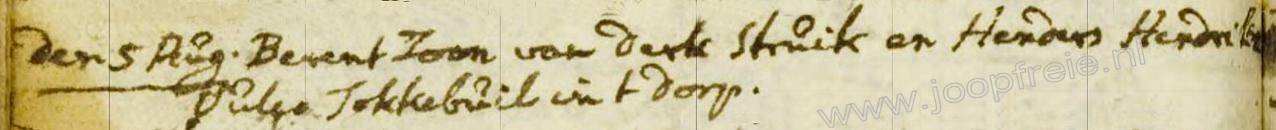 den 5 Aug. Berent Zoon van Derk Struik en Henders Hendrik
Vulgo Tokkebuil in t dorp.
www.joopfreie.nl